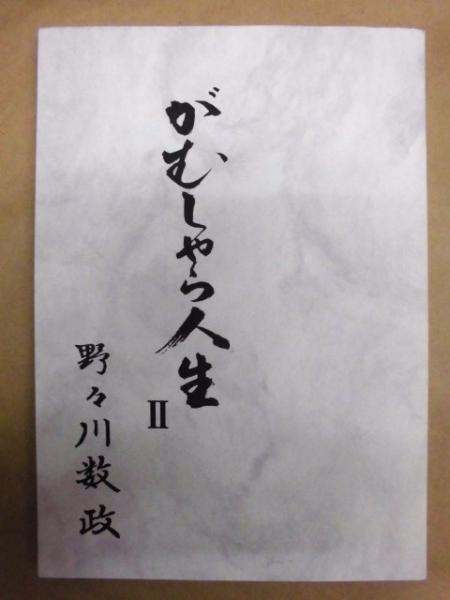 がむしゃら人生
Ⅱ
野々川数政